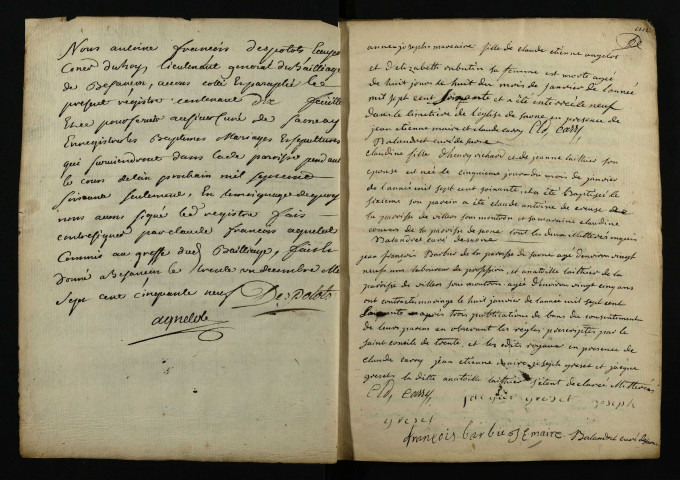 Nous antoine françois Despotots
Coner du Roy, lieutenant general du Bailliage
de Besançon, avons cotté Et paraphé le
present registre contenant dix feuillets
Et ce pour servir au sieur Curé de
Enregistrer les Baptemes Mariages Et sepultures
qui surviendront dans lade paroisse pendant
le cours de l'an prochain mil sept cent
soixante seulement, En temoignage de quoy
nous avons signé led registre fait
contresigner par claude françois aquelot
Commis au greffe dud Bailliage, fait et
donné a Besançon le trente un decembre Mil
Sept cent cinquante neuf Despotots
aquelot
anne josephe marcaire fille de claude etienne
et d'elizabeth aubertin sa femme est morte agé
de huit jours le huit du mois de janvier de l'année
mil sept cent soixante et a été interrée le neuf
dans le cimetiere de l'eglise de saone en presence de
jean etienne maire et claude carry Cld, Carry,
Balandret curé de saone
claudine fille d'henry richard et de jeanne laithier son
epouse est née le cinquieme jour du mois de janvier
de l'année mil sept cent soixante, et a été Baptisée le
sixieme son parein a été claude antoine de
la paroisse de villers sous montron et sa maraine claudine
de la paroisse de saone tout les deux illitteres
Balandret curé de saone
jean françois Barbier de la paroisse de saone agé d'environ vingt
neuf ans laboureur de profession, et anatoille laithier de la
paroisse de villers sous montron agée d'environ vingt cinq ans
ont contracté mariage le huit janvier de l'année mil sept cent
soixante après trois publications de bans du consentement
de leurs parens en observant les regles prescriptes par le
saint concile de trente, et les edits royaux en presence de
claude carry jean etienne maire joseph greset et jacque
greset la ditte anatoille laithier s'étant declarée illitterée
Cld, Carry, jacque greset joseph
greset
françois barbier JE maire Balandret curé de saone